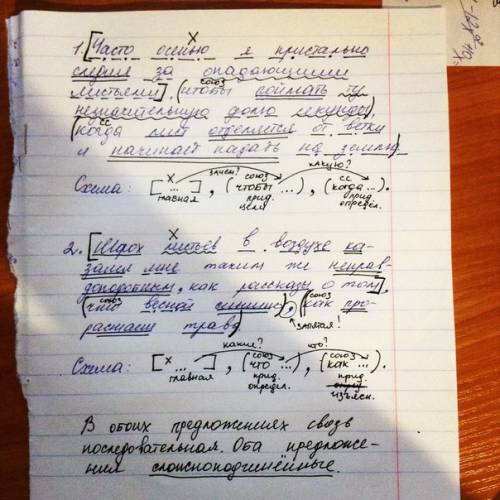 х
1. [Часто осенью я пристально
следил за опадающими
союз
листьями], (чтобы поймать ту
незначительную долю секунды),
сс
(когда лист отделяется от ветки
и начинает падать на землю)
зачем? союз какую? сс
Схема: [х ...], (чтобы ...), (когда ...).
главная прид. цели прид. определ.
х
2. [Шорох листьев в воздухе ка-
зался мне таким же неправ-
доподобным, как рассказы о том],
союз союз
(что весной слышно), (как про-
растает трава)
запятая!
какие? союз что? союз
Схема: [х ...], (что ...), (как ...).
главная прид. определ. прид. изъясн.
В обоих предложениях связь
последовательная. Оба предложе-
ния сложноподчинённые.